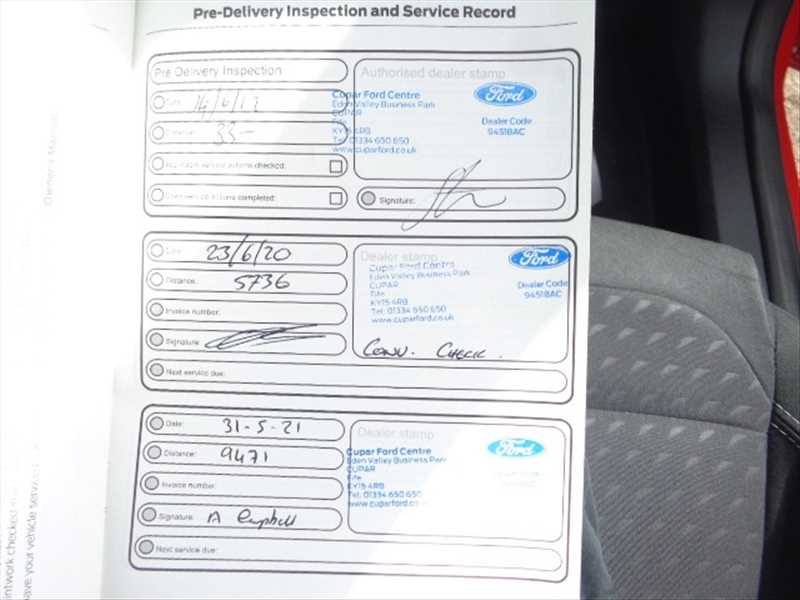 Pre-Delivery Inspection and Service Record
Pre Delivery Inspection
Authorised dealer stamp
Date:
Cupar Ford Centre
Eden Valley Business Park
CUPAR
Fife
KY15 4RB
Tel: 01334 650 650
www.cuparford.co.uk
Ford
Dealer Code
94518AC
33-
actions checked:
actions completed:
Signature:
Date: 23/6/20
Distance: 5736
Invoice number:
Signature:
Next service due:
Dealer stamp
Cupar Ford Centre
Eden Valley Business Park
CUPAR
Fife
KY15 4RB
Tel: 01334 650 650
www.cuparford.co.uk
Ford
Dealer Code
94518AC
CONV. CHECK.
Date: 31-5-21
Distance: 9471
Invoice number:
Signature: A
Next service due:
Dealer stamp
Cupar Ford Centre
Eden Valley Business Park
CUPAR
Fife
KY15 4RB
Tel: 01334 650 650
www.cuparford.co.uk
Ford
Owner's Manual
intwork checked
ave your vehicle